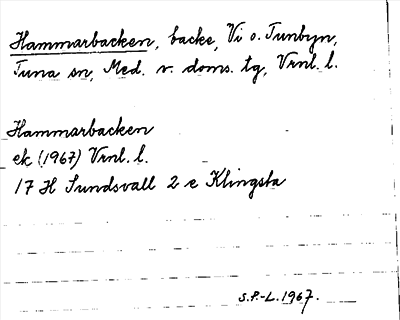 Hammarbacken, backe, Vi o. Tunbyn,
Tuna sn, Med. v. doms. tg, Vrnl. l.
Hammarbacken
ek (1967) Vrnl. l.
17 H Sundsvall 2 e Klingsta
S.P.-L. 1967.